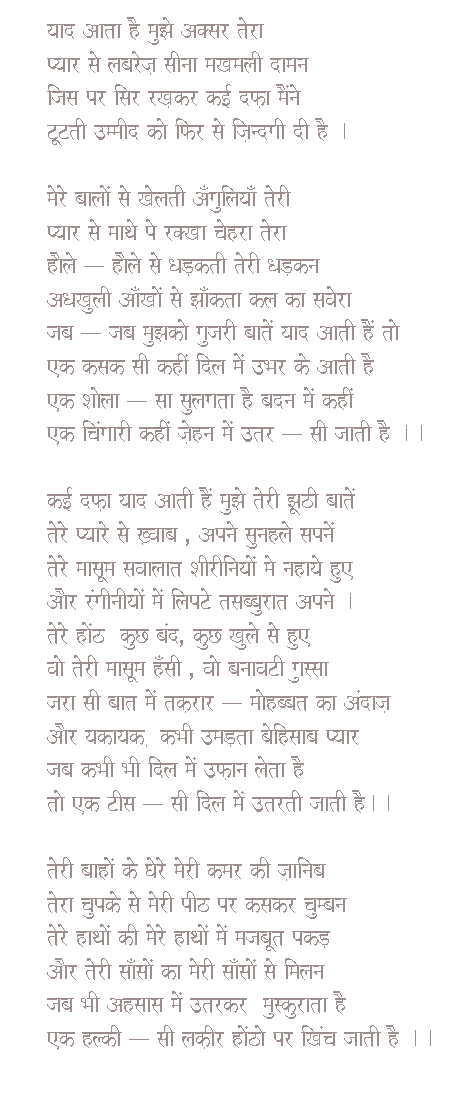 याद आता है मुझे अक्सर तेरा
प्यार से लबरेज़ सीना मखमली दामन
जिस पर सिर रख़कर कई दफ़ा मैंने
टूटती उम्मीद को फिर से ज़िन्दगी दी है |
मेरे बालों से खेलती अँगुलियाँ तेरी
प्यार से माथे पे रक्खा चेहरा तेरा
हौले — हौले से धड़कती तेरी धड़कन
अधखुली आँखों से झाँकता कल का सवेरा
जब — जब मुझको गुजरी बातें याद आती हैं तो
एक कसक सी कहीं दिल में उभर के आती है
एक शोला — सा सुलगता है बदन में कहीं
एक चिंगारी कहीं ज़ेहन में उतर — सी जाती है ||
कई दफ़ा याद आती हैं मुझे तेरी झूठी बातें
तेरे प्यारे से ख़्वाब , अपने सुनहले सपनें
तेरे मासूम सवालात शीरीनियों मे नहाये हुए
और रंगीनीयों में लिपटे तसब्बुरात अपने |
तेरे होंठ कुछ बंद, कुछ खुले से हुए
वो तेरी मासूम हँसी , वो बनावटी गुस्सा
जरा सी बात में तक़रार — मोहब्बत का अंदाज़
और यकायक़ कभी उमड़ता बेहिसाब प्यार
जब कभी भी दिल में उफ़ान लेता है
तो एक टीस — सी दिल में उतरती जाती है||
तेरी बाहों के घेरे मेरी कमर की ज़ानिब
तेरा चुपके से मेरी पीठ पर कसकर चुम्बन
तेरे हाथों की मेरे हाथों में मजबूत पकड़
और तेरी साँसों का मेरी साँसों से मिलन
जब भी अहसास में उतरकर मुस्कुराता है
एक हल्की — सी लक़ीर होंठो पर खिंच जाती है ||